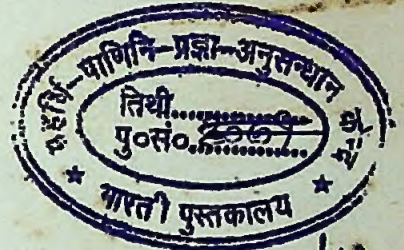 महर्षि-पाणिनि-प्रज्ञा-अनुसन्धान
तिथी..................
पु०सं०
★ भारती पुस्तकालय ★